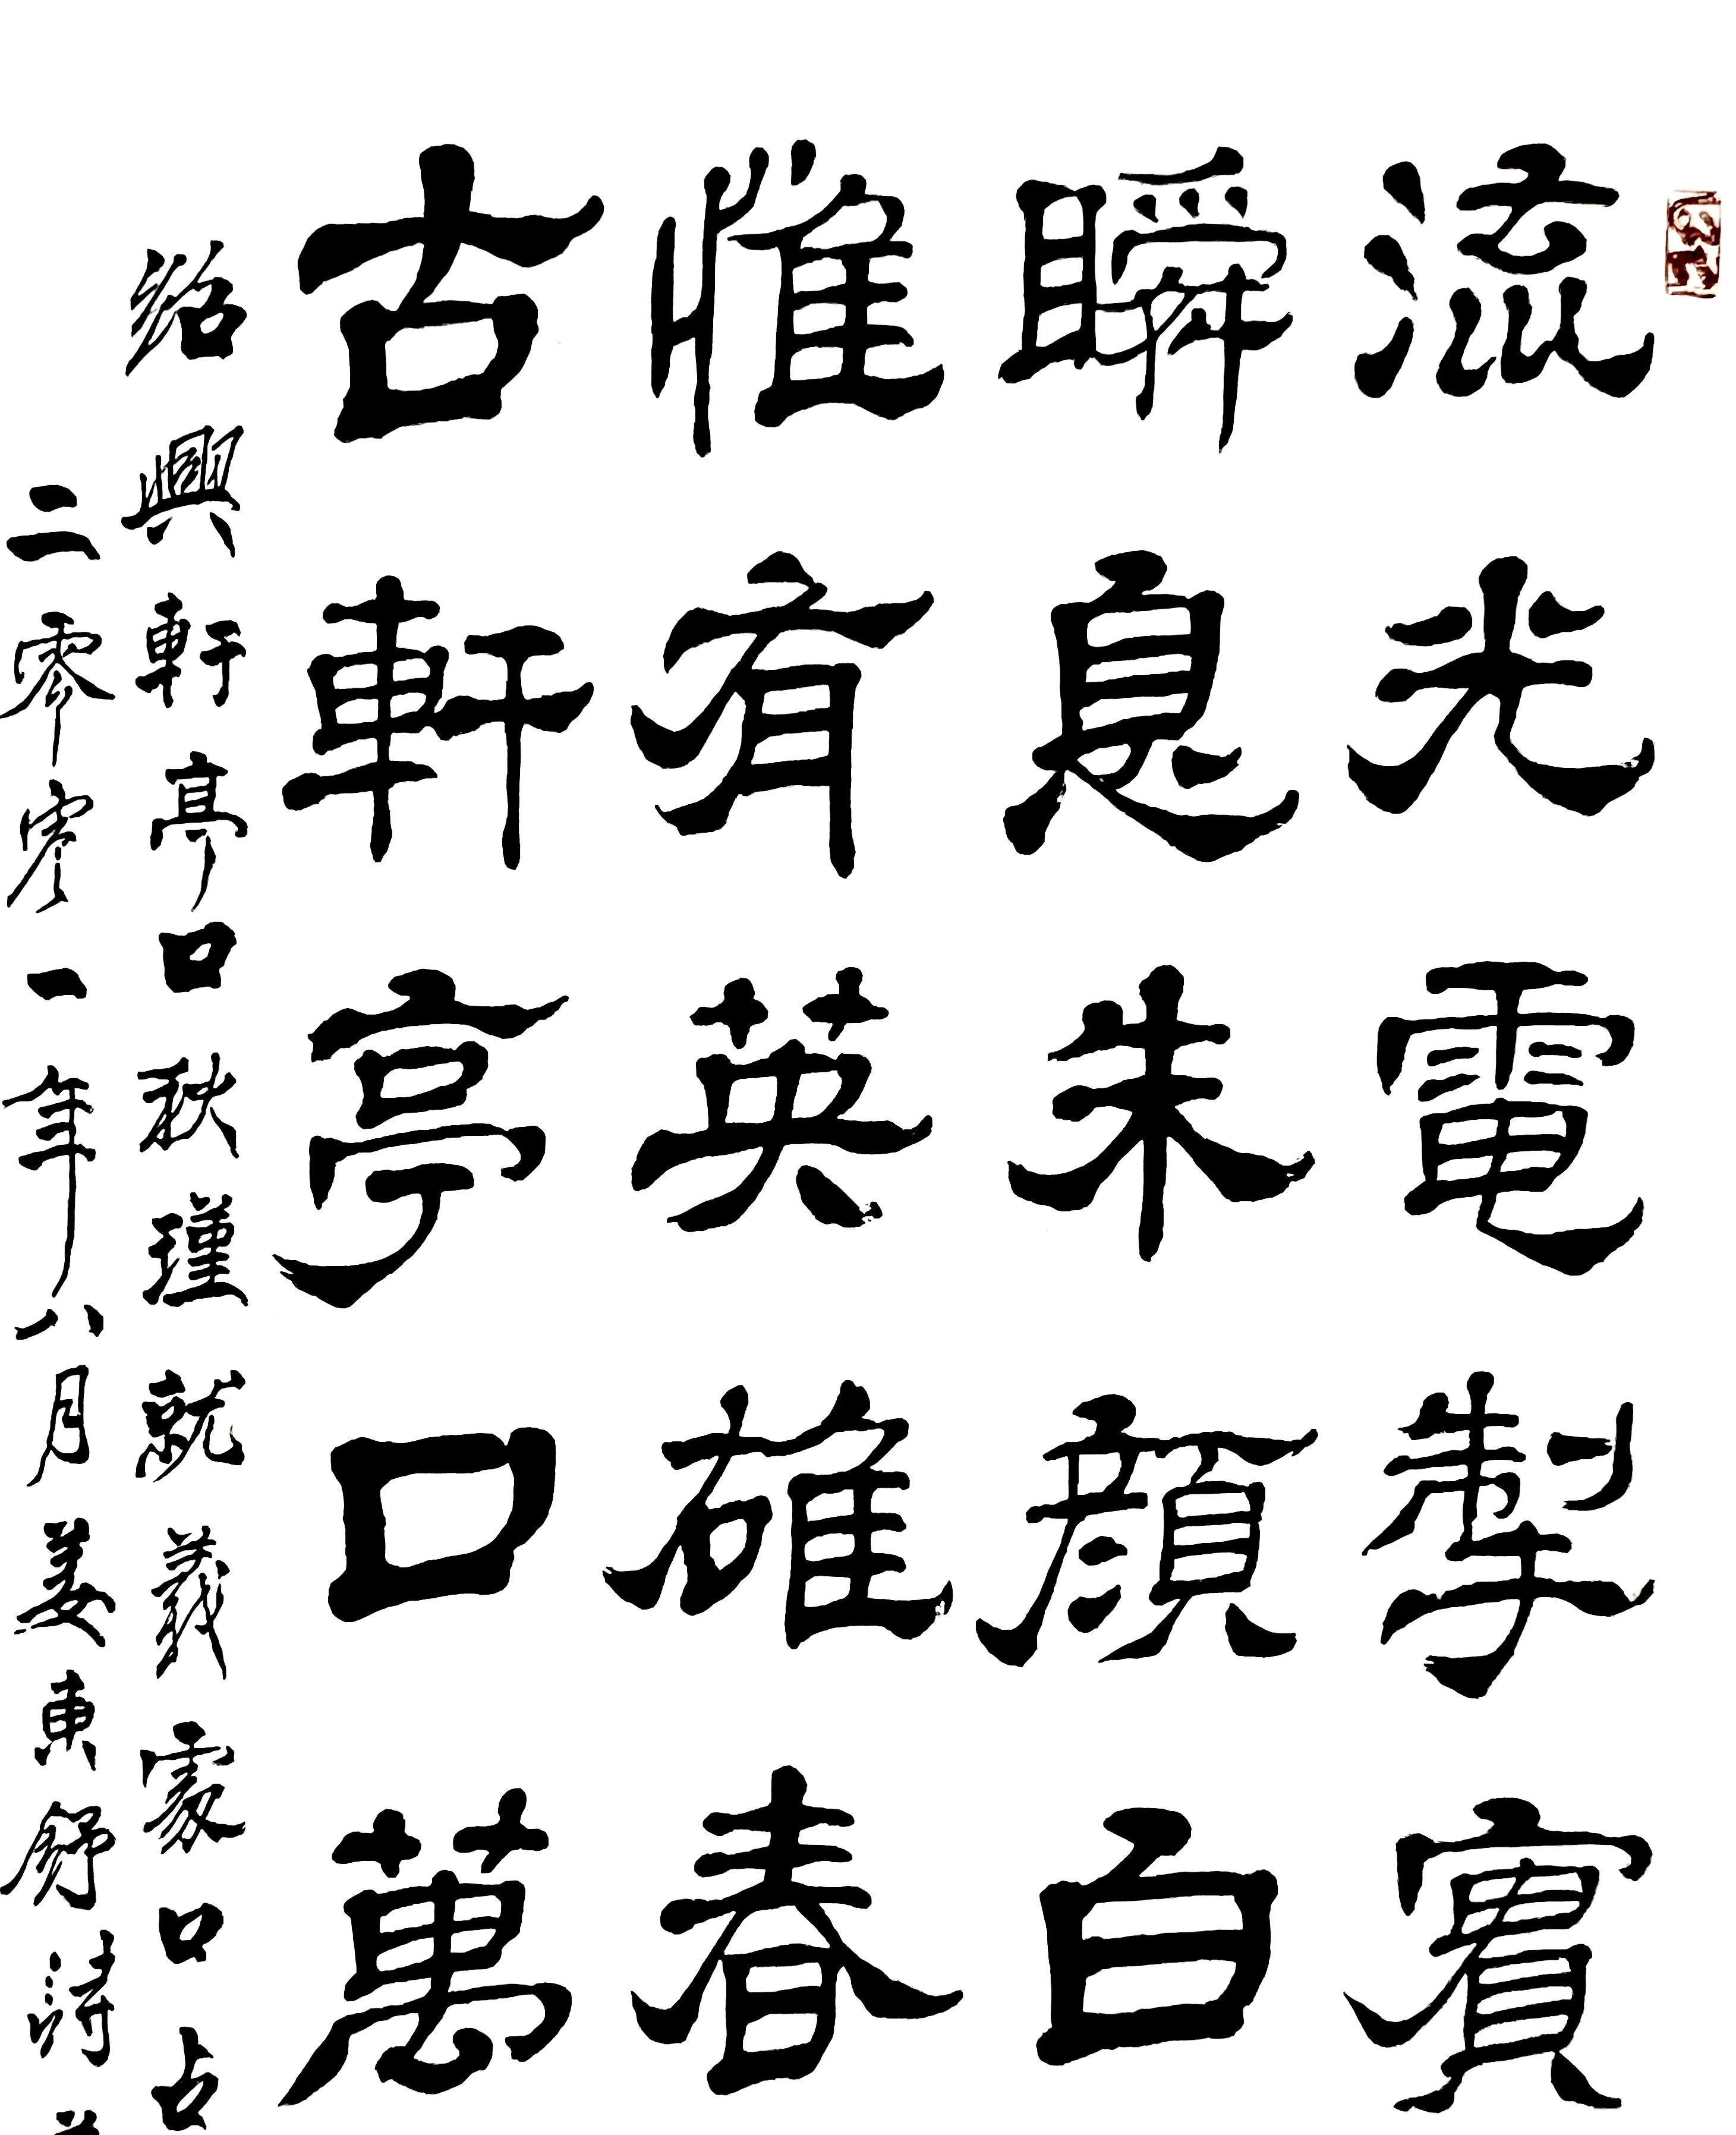 流光電掣賓
瞬息朱顏白
惟有英雄春
古軒亭口萬
紹興軒亭口秋瑾就義口占
二零零一年八月姜東舒詩